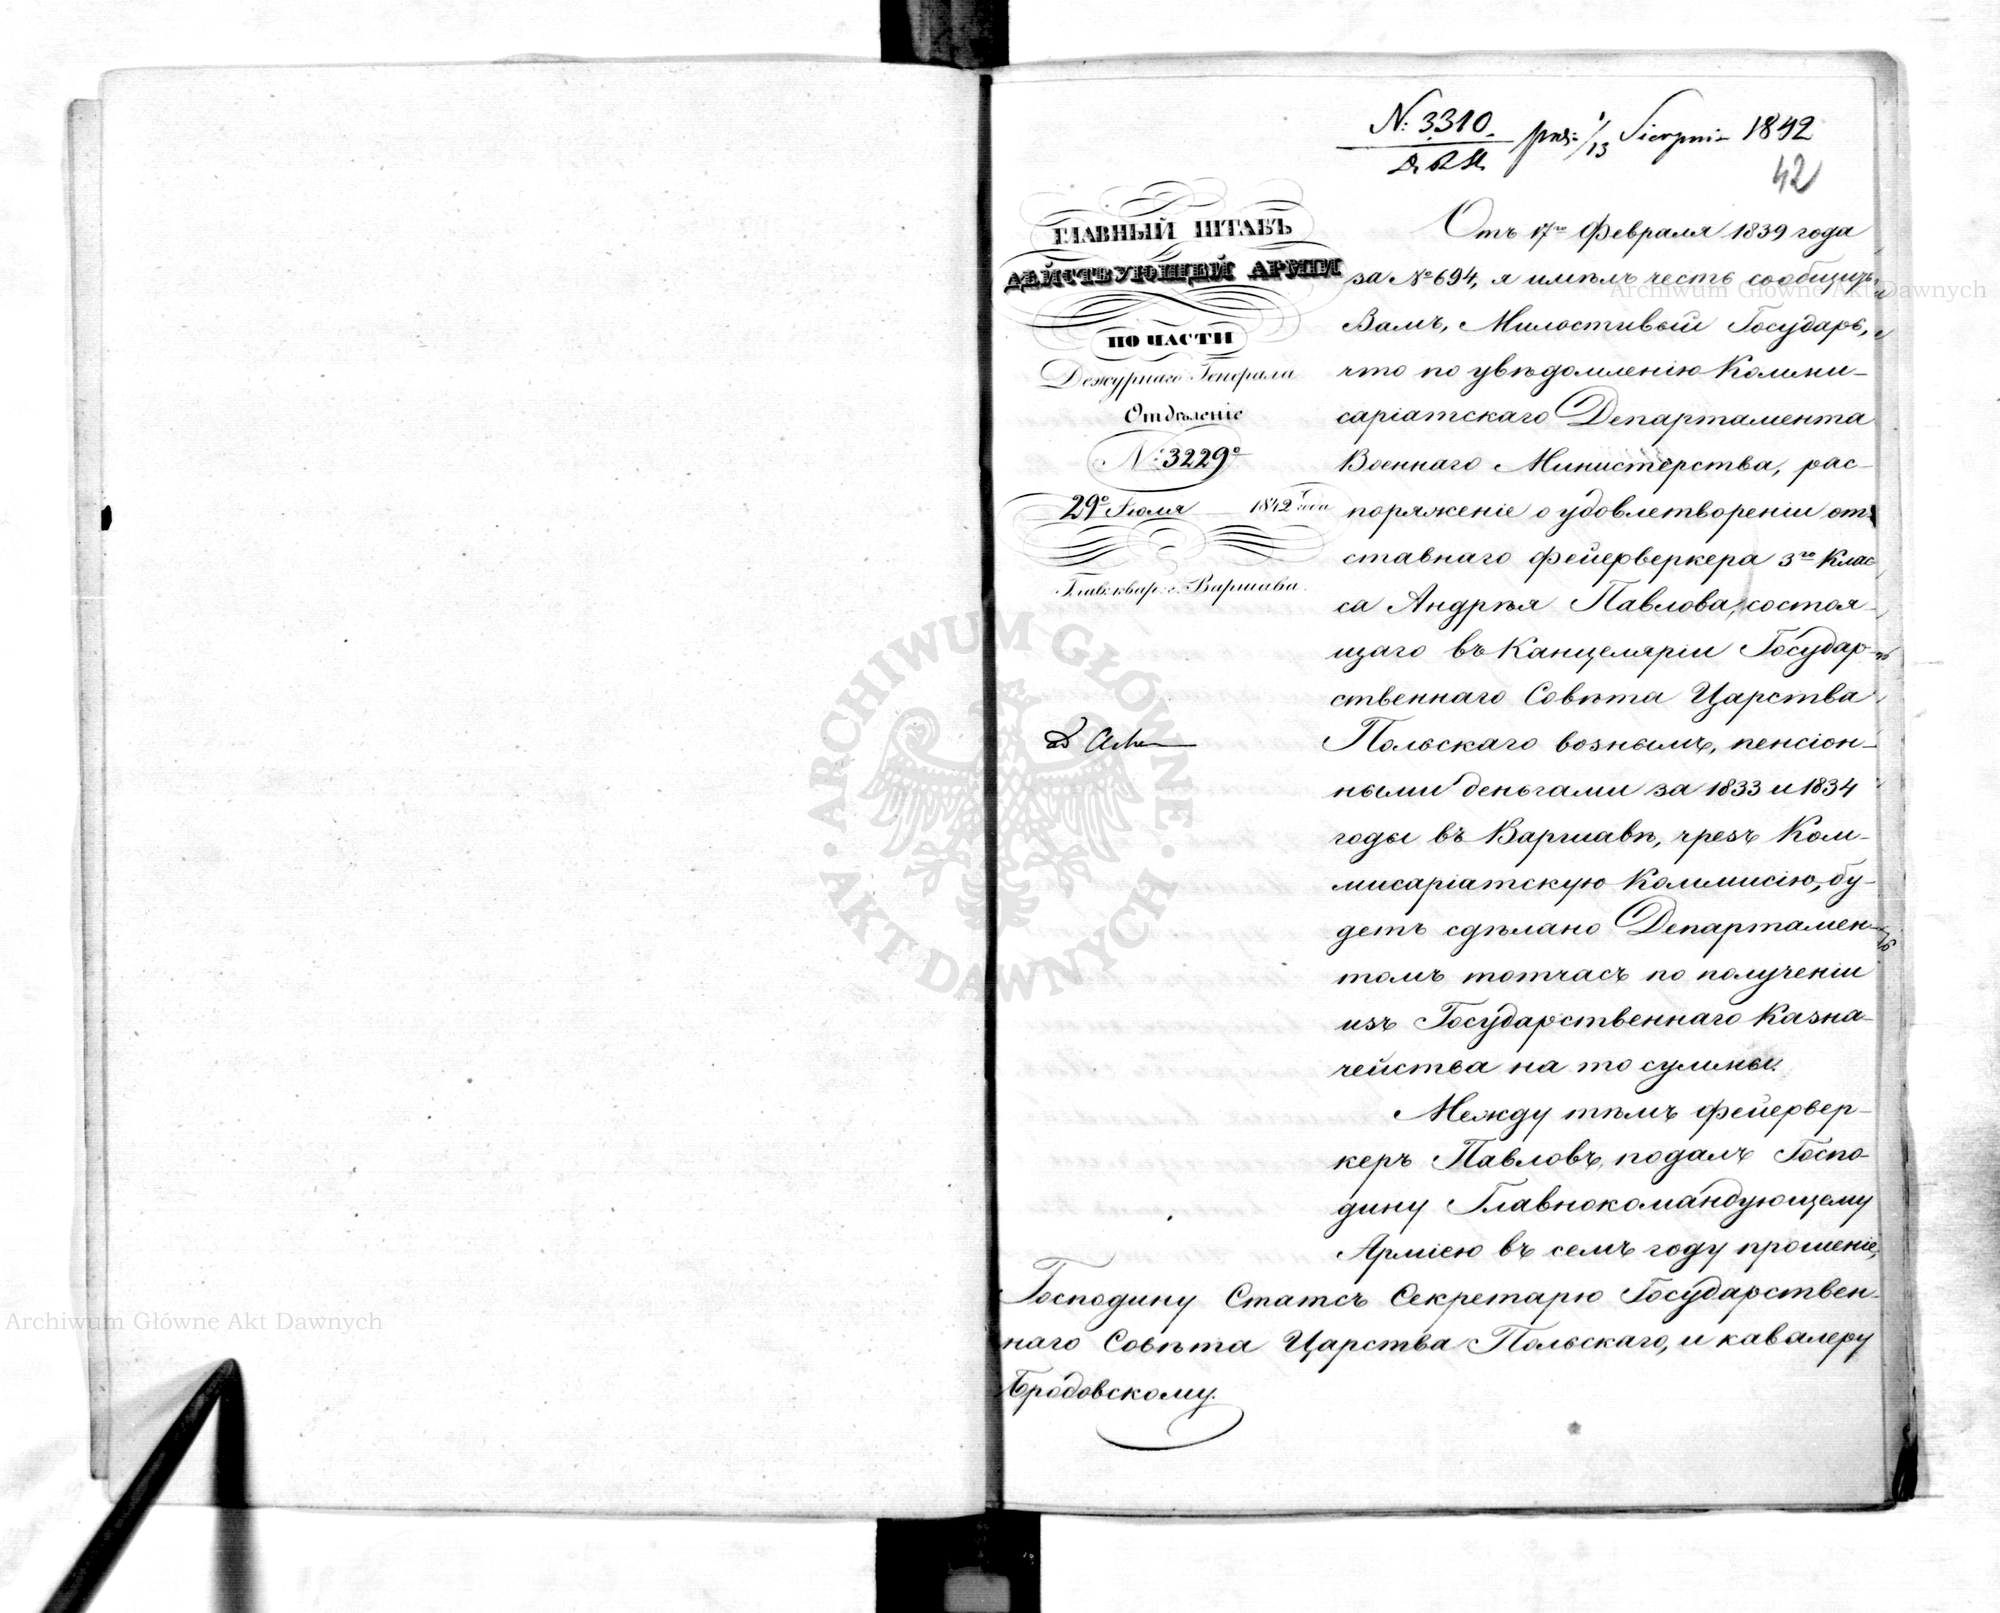 N: 3310. 1/13 Sierpni 1842
42
ГЛАВНЫЙ ШТАБЪ
ДѢЙСТВУЮЩЕЙ АРМІИ
ПО ЧАСТИ
Дежурнаго Генерала
Отдѣленіе
№ 3229º
29º Іюля 1842 года
Глав: квар: г. Варшава.
ad Acta
Отъ 17го Февраля 1839 года
за № 694, я имѣлъ честь сообщить
Вамъ, Милостивый Государь,
что по увѣдомленію Комми-
саріатскаго Департамента
Военнаго Министерства, рас-
поряженіе о удовлетвореніи от-
ставнаго фейерверкера 3го Клас
са Андрѣя Павлова, состоя-
щаго въ Канцеляріи Государ-
ственнаго Совѣта Царства
Польскаго вознымъ, пенсіон-
ными деньгами за 1833 и 1834
годы въ Варшавѣ, чрезъ Ком-
мисаріатскую Коммисію, бу-
детъ сдѣлано Департамен-
томъ тотчасъ по полученіи
изъ Государственнаго Казна-
чейства на то суммы.
Между тѣмъ фейервер-
керъ Павловъ, подалъ Госпо-
дину Главнокомандующему
Арміею въ семъ году прошеніе,
Господину Статсъ Секретарю Государствен-
наго Совѣта Царства Польскаго, и кавалеру
Бродовскому.
Archiwum Główne Akt Dawnych
Archiwum Główne Akt Dawnych
ARCHIWUM GŁÓWNE · AKT DAWNYCH ·